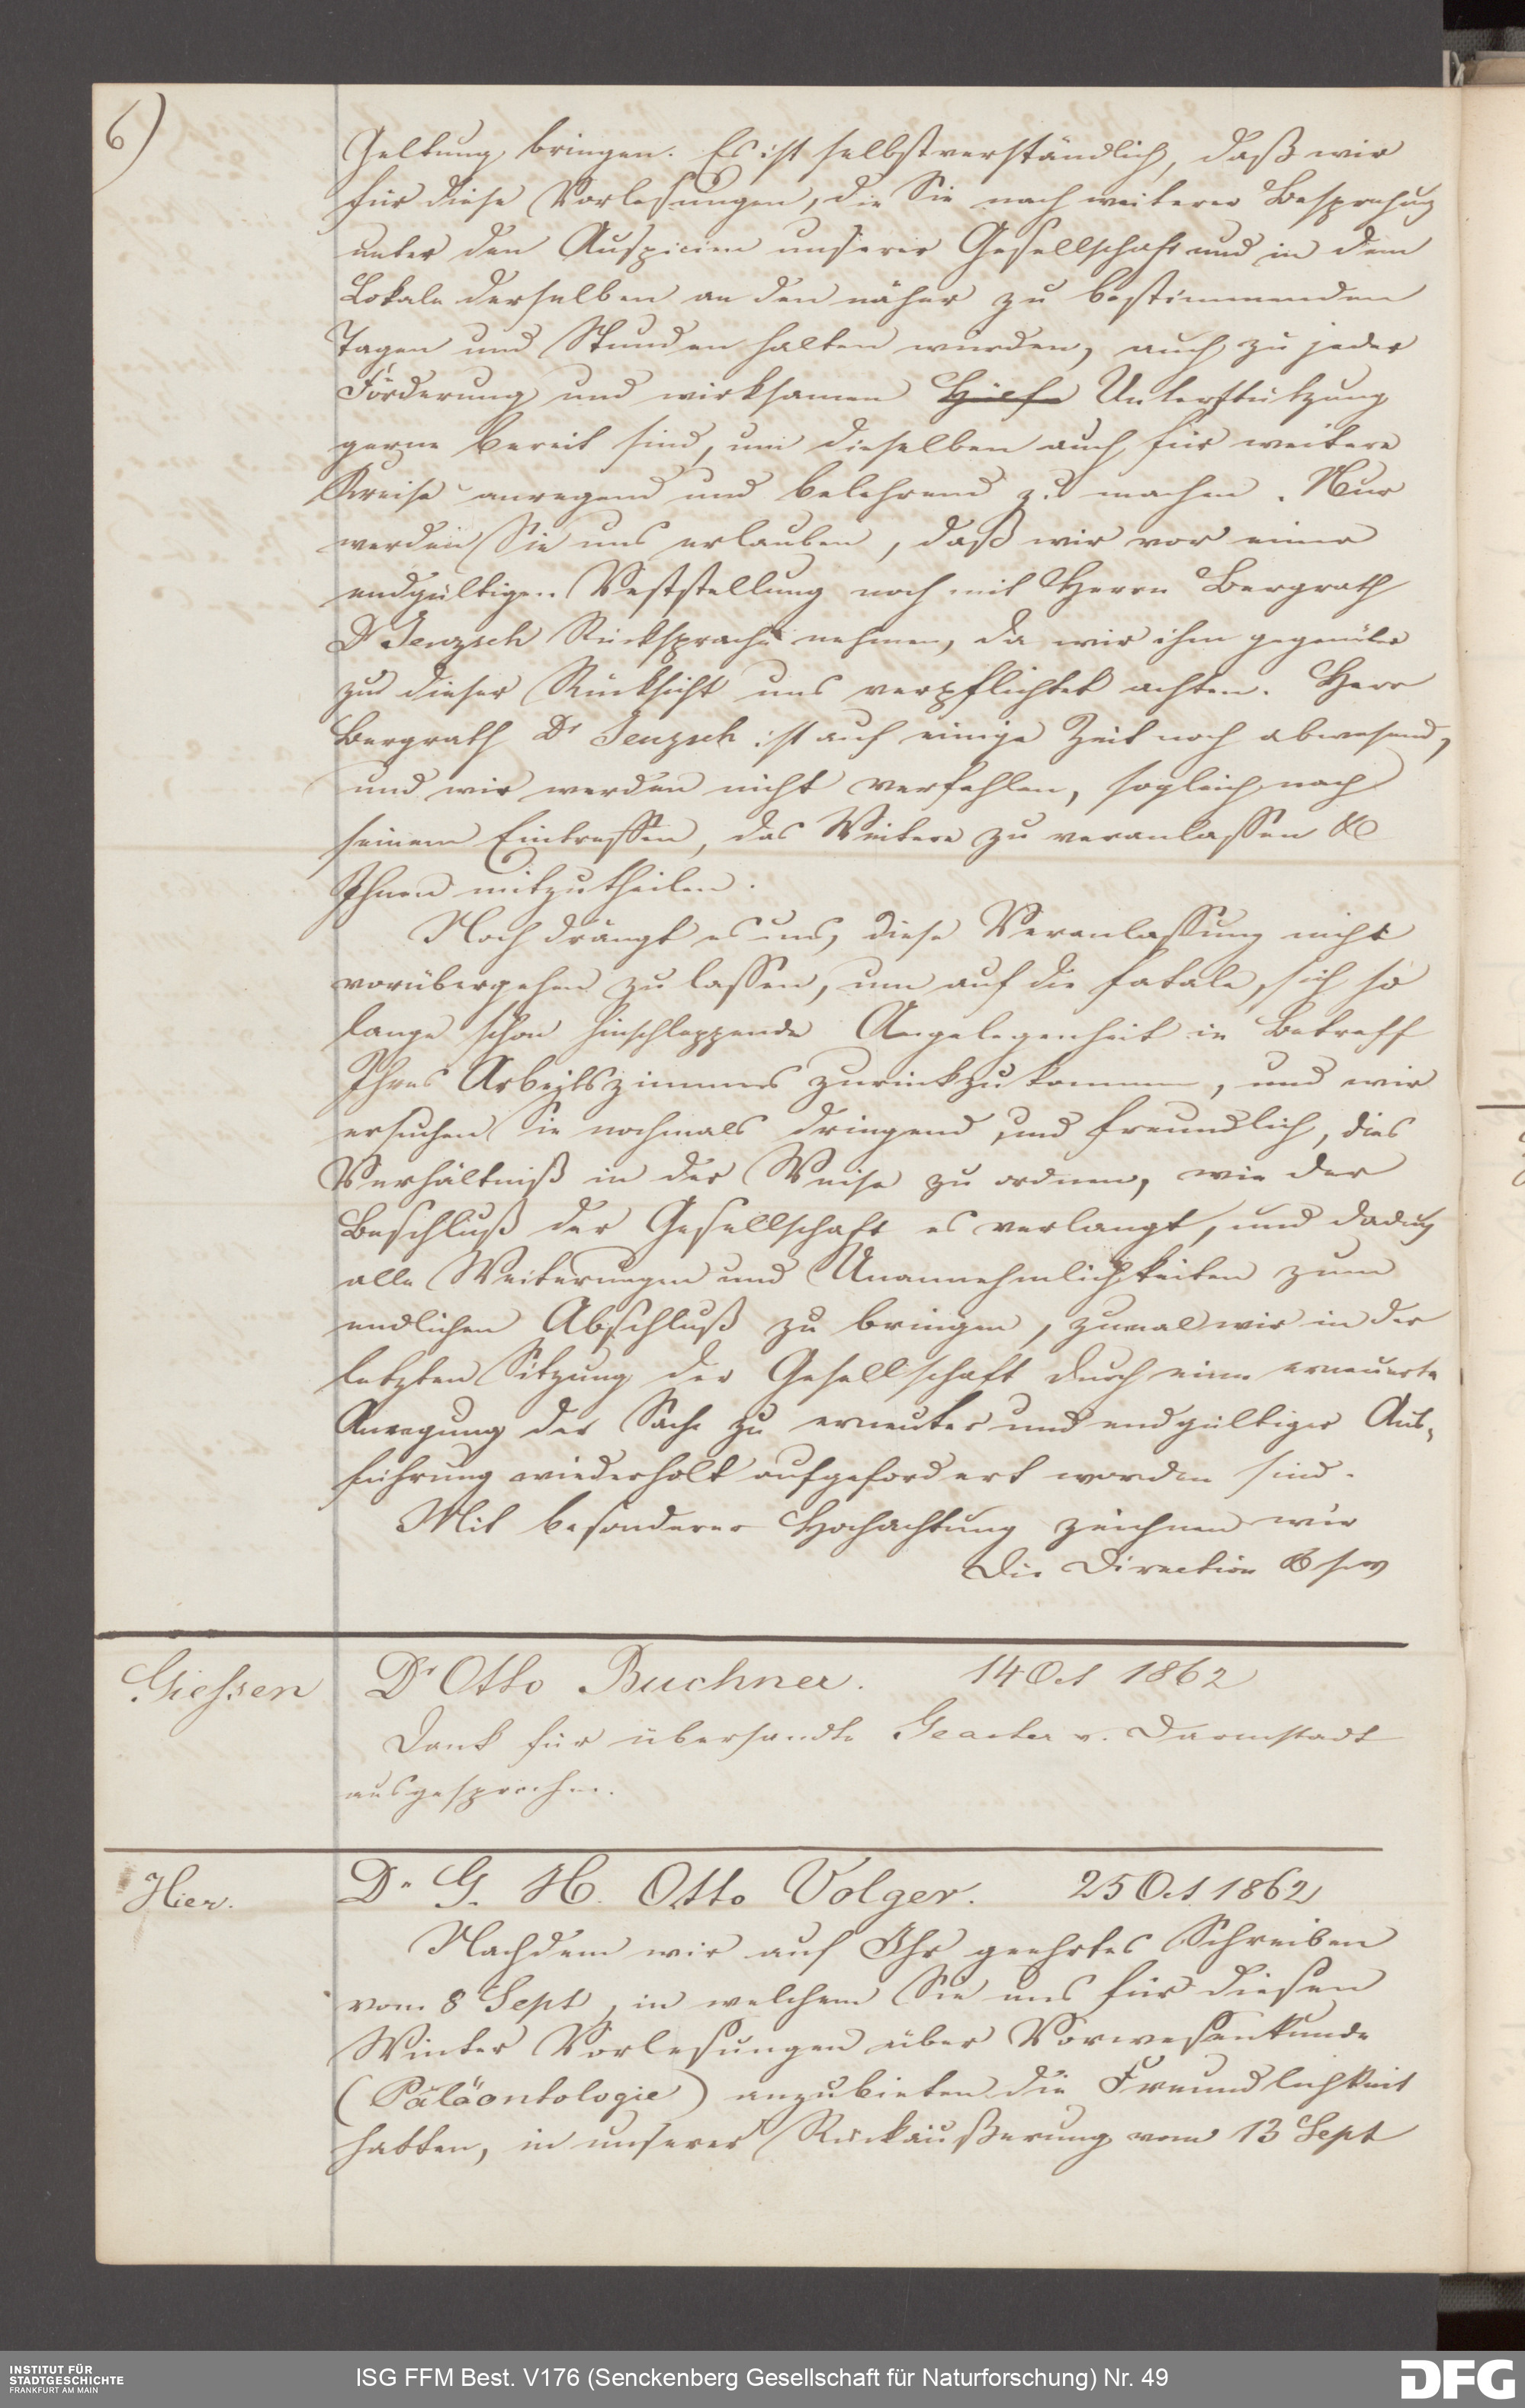 6)
Geltung bringen. Es ist selbstverständlich, daß wir
für diese Vorlesungen, die Sie nach weiterer Besprechung
unter den Auspicien unserer Gesellschaft und in dem
Lokale derselben an den näher zu bestimmenden
Tagen und Stunden halten würden, auch zu jeder
Förderung und wirksamen Hülfe Unterstützung
gerne bereit sind, um dieselben auch für weitere
Kreise anregend und belehrend zu machen. Nur
werden Sie uns erlauben, daß wir vor einer
endgültigen Veststellung noch mit Herrn Bergrath
Dr Jenzsch Rücksprache nehmen, da wir ihm gegenüber
zu dieser Rücksicht uns verpflichtet achten. Herr
Bergrath Dr Jenzsch ist auf einige Zeit noch abwesend,
und wir werden nicht verfehlen, sogleich nach
seinem Eintreffen, das Weitere zu veranlassen &
Ihnen mitzutheilen.
Noch drängt es uns, diese Veranlassung nicht
vorübergehen zu lassen, um auf die fatale, sich so
lange schon hinschleppende Angelegenheit in Betreff
Ihres Arbeitszimmers zurückzukommen, und wir
ersuchen Sie nochmals dringend und freundlich, dies
Verhältniß in der Weise zu ordnen, wie der
Beschluß der Gesellschaft es verlangt, und dadurch
alle Weiterungen und Unannehmlichkeiten zum
endlichen Abschluß zu bringen, zumal wir in der
letzten Sitzung der Gesellschaft durch eine erneuerte
Anregung der Sache zu erneuter und endgültiger Aus-
führung wiederholt aufgefordert worden sind.
Mit besonderer Hochachtung zeichnen wir
Die Direction
Giessen
Dr Otto Buchner. 14 Oct 1862
Dank für übersandte v. Darmstadt
ausgesprochen.
Hier.
Dr G. H. Otto Volger. 25 Oct 1862
Nachdem wir auf Ihr geehrtes Schreiben
vom 8 Sept, in welchem Sie uns für diesen
Winter Vorlesungen über Vorwesenkunde
(Paläontologie) anzubieten die Freundlichkeit
hatten, in unserer Rückäußerung vom 13 Sept
INSTITUT FÜR
STADTGESCHICHTE
FRANKFURT AM MAIN
ISG FFM Best. V176 (Senckenberg Gesellschaft für Naturforschung) Nr. 49
DFG